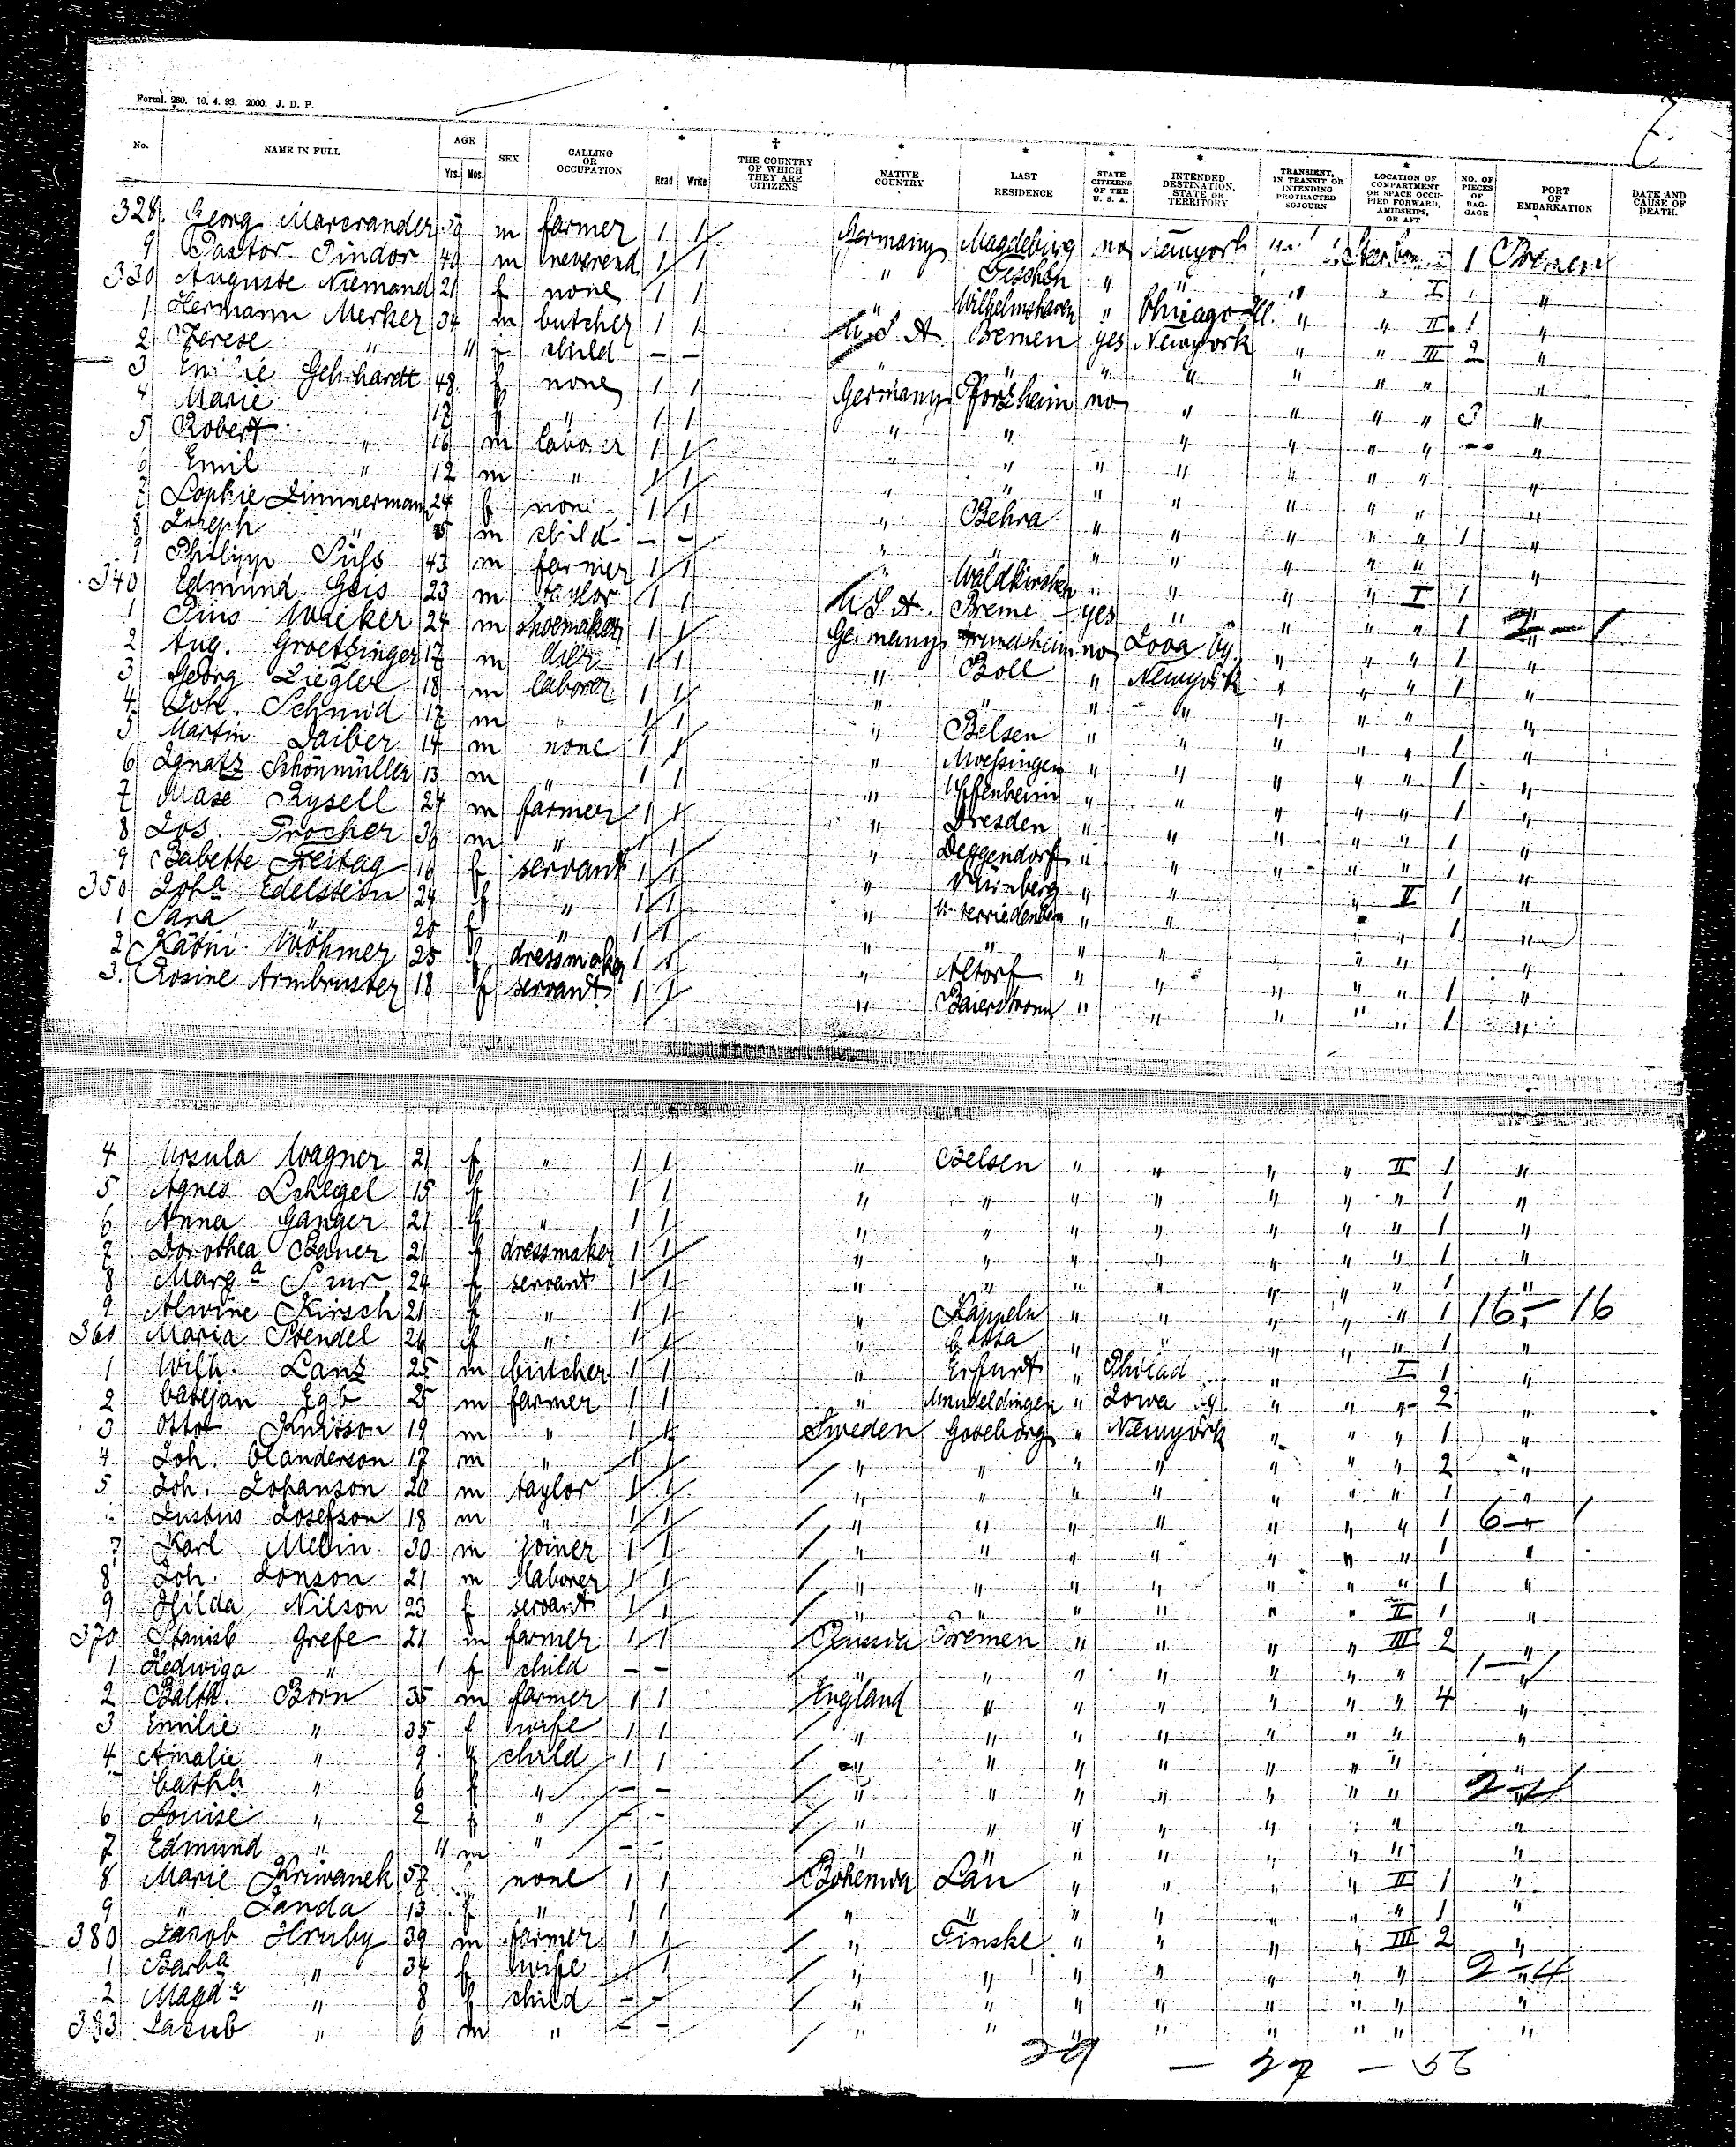 Forml. 260. 10. 4. 93. 2000. J. D. P.
No. NAME IN FULL AGE Yrs. Mos. SEX CALLING OR OCCUPATION * Read Write † THE COUNTRY OF WHICH THEY ARE CITIZENS * NATIVE COUNTRY * LAST RESIDENCE * STATE CITIZENS OF THE U. S. A. * INTENDED DESTINATION, STATE OR TERRITORY * TRANSIENT, IN TRANSIT OR INTENDING PROTRACTED SOJOURN * LOCATION OF COMPARTMENT OR SPACE OCCUPIED FORWARD, AMIDSHIPS, OR AFT NO. OF PIECES OF BAGGAGE PORT OF EMBARKATION DATE AND CAUSE OF DEATH.
328. Georg 50 m farmer 1 1 Germany Magdeburg no Newyork 1 Bremen
9 Pastor Pindor 40 m reverend 1 1 " Teschen " " " " I "
330 Auguste Niemand 21 f none 1 1 " Wilhelmshaven " Chicago Ill. " " II 1 "
1 Hermann Merker 34 m butcher 1 1 U. S. A. Bremen yes Newyork " " III 2 "
2 Therese " 11 f child - - " " " " " " " "
3 Emilie Gebhardt 48 f none 1 1 Germany Pforzheim no " " " " 3 "
4 Marie 17 f " 1 1 " " " " " " "
5 Robert " 16 m laborer 1 1 " " " " " " " "
6 Emil " 12 m " 1 1 " " " " " " " "
7 Sophie Zimmermann 24 f none 1 1 " Bebra " " " " " 1 "
8 Joseph " 5 m child - - " " " " " " " "
9 Philipp Süß 43 m farmer 1 1 " Waldkirchen " " " " I 1 "
340 Edmund Geis 23 m taylor 1 1 U S A. Breme yes " " " " 1 2 - 1
1 Pius Walker 24 m shoemaker 1 1 Germany no Iova Cy " " " 1 "
2 Aug. Groetzinger 17 m 1 1 " Boll " Newyork " " " 1 "
3 Georg Ziegler 18 m laborer 1 1 " " " " " " " "
4 Joh. Schmid 17 m " 1 1 " Belsen " " " " " 1 "
5 Martin Daiber 14 m none 1 1 " Moessingen " " " " " 1 "
6 Ignatz Schönmüller 13 m " 1 1 " Uffenheim " " " " " 1 "
7 Rysell 24 m farmer 1 1 " Dresden " " " " " 1 "
8 Jos. Procher 36 m " 1 " Deggendorf " " " " " 1 "
9 Babette Freitag 16 f servant 1 1 " Nürnberg " " " II 1 "
350 Joha Edelstein 24 f " 1 1 " " " " 1 "
1 Sara " 20 f " 1 1 " " " " " " "
2 Kathi Wöhmer 25 f dressmaker 1 1 " Altorf " " " " " 1 "
3. Rosine Armbruster 18 f servant 1 1 " Baiersbronn " " " " " 1 "
4 Ursula Wagner 21 f " 1 1 " Belsen " " " " II 1 "
5 Agnes Schlegel 15 f " 1 1 " " " " " " " 1 "
6 Anna Ganger 21 f " 1 1 " " " " " " " 1 "
7 Dorothea Bauer 21 f dressmaker 1 1 " " " " " " " 1 "
8 Marga 24 f servant 1 1 " " " " " " " 1 "
9 Alwine Kirsch 21 f " 1 1 " Kappeln " " " " " 1 16 - 16
360 Maria Stendel 24 f " 1 1 " " " " " " 1 "
1 Wilh. Lanz 25 m butcher 1 1 " Erfurt " Philad " " I 1 "
2 Egb 25 m farmer 1 1 " " Iowa Cy. " " " 2 "
3 Otto Knutson 19 m " 1 1 Sweden Goteborg " Newyork " " " 1 "
4 Joh. Olanderson 17 m " 1 1 " " " " " " " 2 "
5 Joh. Johanson 20 m taylor 1 1 " " " " " " " 1 "
Justus Josefson 18 m " 1 1 " " " " " " " 1 6 - 1
7 Karl Melin 30 m joiner 1 1 " " " " " " " 1 "
8 Joh. Jonson 21 m laborer 1 1 " " " " " " " 1 "
9 Hilda Nilson 23 f servant 1 1 " " " " " " II 1 "
370 Stanisl Grefe 21 m farmer 1 1 Russia Bremen " " " " III 2 "
1 Hedwiga " 1 f child - - " " " " " " " 1 - 1
2 Balth. Born 35 m farmer 1 1 England " " " " " " 4 "
3 Emilie " 35 f wife 1 1 " " " " " " " "
4 Amalie " 9 f child 1 1 " " " " " " " "
Catha " 6 f " - - " " " " " " " 2 - 4
6 Louise " 2 f " - - " " " " " " " "
7 Edmund " 11 m " - - " " " " " " " "
8 Marie Kriwanek 57 none 1 1 Bohemia Lan " " " " II 1 "
9 " Janda 13 f " 1 1 " " " " " " " 1 "
380 Jakob Hruby 39 m farmer 1 1 " Tinske " " " " III 2 "
1 Barba " 34 f wife 1 1 " " " " " " " 2 - 4
2 Magda " 8 f child - - " " " " " " " "
383 Jakub " 6 m " - - " " " " " " " "
29 - 27 - 56